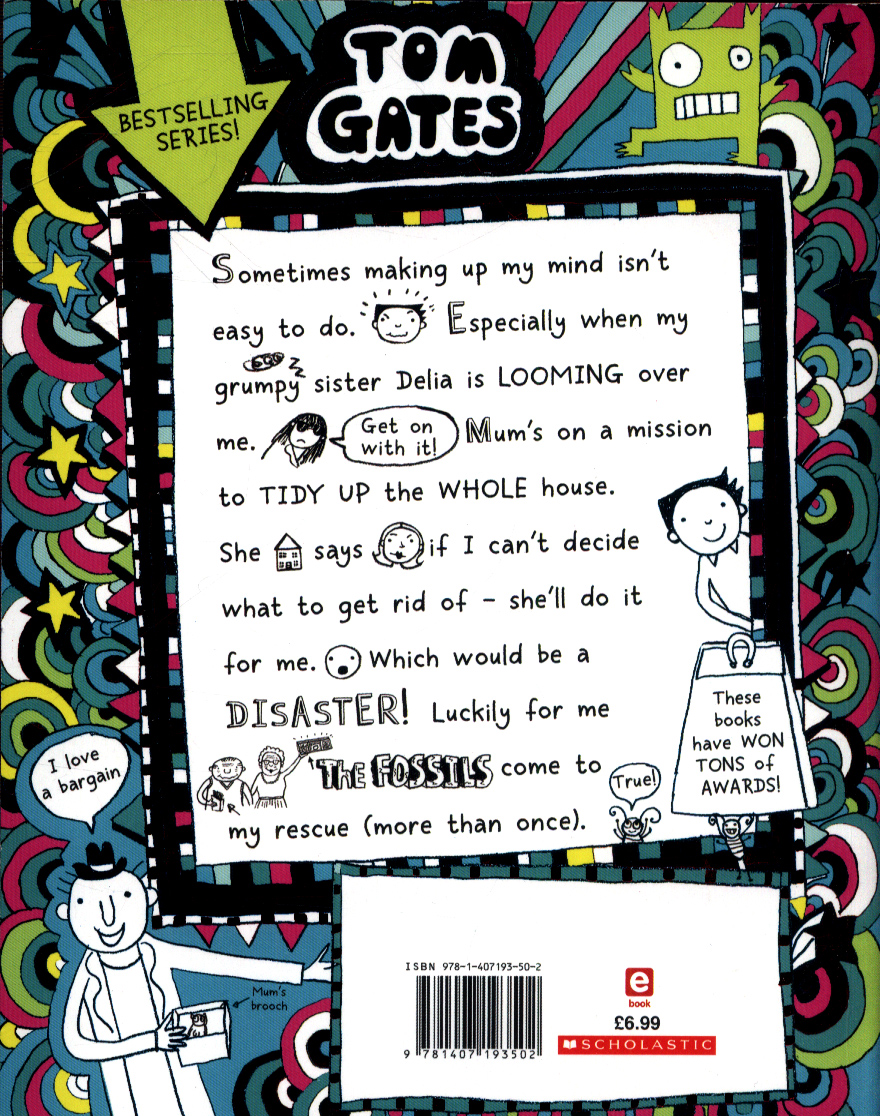 TOM
GATES
BESTSELLING
SERIES!
Sometimes making up my mind isn't
easy to do. Especially when my
grumpy sister Delia is LOOMING over
me. Get on
with it! Mum's on a mission
to TIDY UP the WHOLE house.
She says if I can't decide
what to get rid of – she'll do it
for me. Which would be a
DISASTER! Luckily for me
THE FOSSILS come to
my rescue (more than once).
True!
These
books
have WON
TONS of
AWARDS!
I love
a bargain
Mum's
brooch
ISBN 978-1-407193-50-2
9 781407 193502
e
book
£6.99
SCHOLASTIC